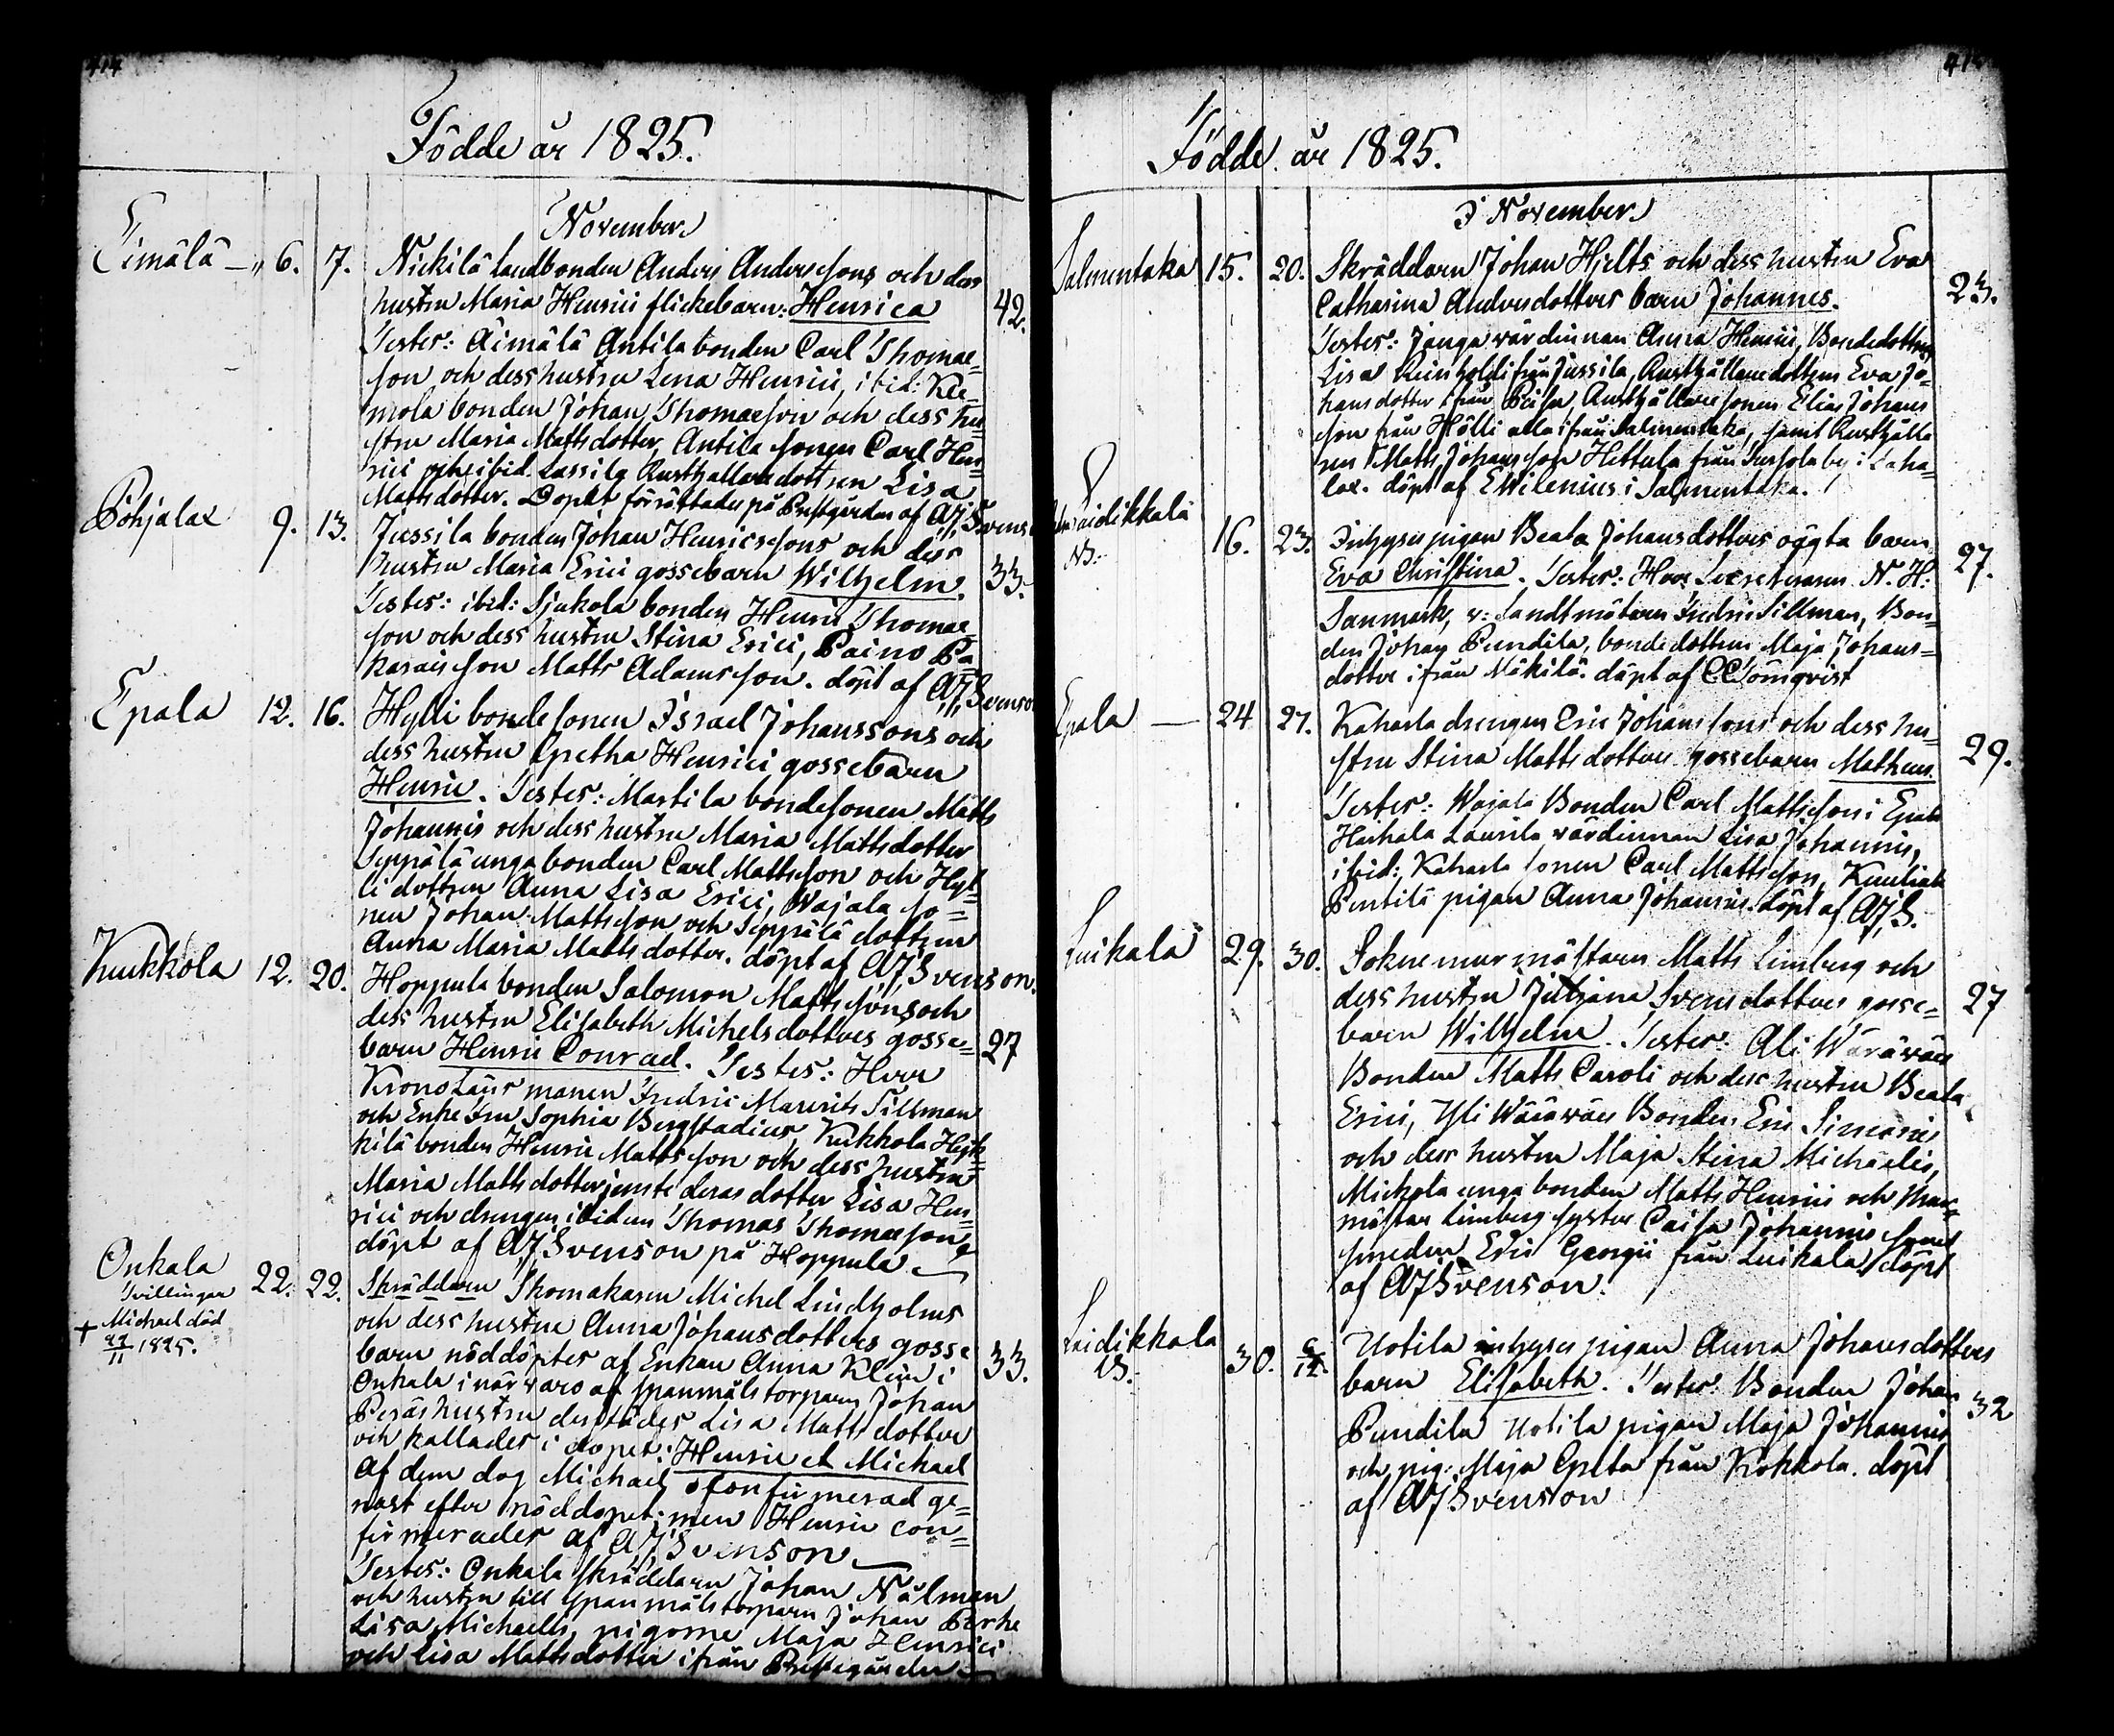 414
Födde år 1825.
November
Eimälä — 6. 7. Nickilä landbonden Anders Anderssons och dess
hustru Maria Henrici flickebarn: Henrica 42.
Testes: Äimälä Antila bonden Carl Thomae=
son och dess hustru Lena Henrici, ibid: Kle=
mola bonden Johan Thomaeson och dess hu=
stru Maria Mattsdotter, Antila sonen Carl Hen=
rici och ibid. Lassila Rusthållare dottren Lisa
Mattsdotter. Dopet förrättades på Prestgården af AJ Svenson
Pohjalax 9. 13. Jussila bonden Johan Henricssons och dess
hustru Maria Erici gossebarn Wilhelm. 33.
Testes: ibid: Sjukola bonden Henric Thomae
son och dess hustru Stina Erici, Paino Pa=
karais son Matts Adamsson. döpt af AJ Svenson
Epala 12. 16. Hylli bonde sonen Israel Johanssons och
dess hustru Gretha Henrici gossebarn
Henric. Testes: Martila bondesonen Matts
Johannis och dess hustru Maria Mattsdotter
Seppälä unga bonden Carl Mattsson och Hyl=
li dottren Anna Lisa Erici, Wajala so=
nen Johan Mattsson och Seppälä dottren
Anna Maria Mattsdotter. döpt af AJ Svenson.
Kukkola 12. 20. Hoppula bonden Salomon Mattssons och
dess hustru Elisabeth Michelsdotters gosse= 27
barn Henric Conrad. Testes: Herr
Kronolänsmanen Fredric Maurits Tillman
och Enke Fru Sophia Bergstadius, Kukkola Heik=
kilä bonden Henric Mattsson och dess hustru
Maria Mattsdotter jemte deras dotter Lisa Hen=
rici och drengen ibidem Thomas Thomaeson
döpt af AJ Svenson på Hoppula
Onkala
Tvillingar
+ Michael död
22/11 1825.
22. 22. Skräddaren Skomakaren Michel Lindholms
och dess hustru Anna Johansdotters gosse
barn nöddöptes af Enkan Anna Klein i 33.
Onkala i närwaro af spanmåls torparn Johan
Peräs hustru derstädes Lisa Matts dotter
och kallades i dopet: Henric et Michael
Af dem dog Michael oconfirmerad ge=
nast efter nöddopet; men Henric con=
firmerades af AJ Svenson
Testes: Onkala skräddarn Johan Nälman
och hustru till spanmåls torparn Johan Perhe
Lisa Michaelis, pigorne Maja Henrici
och Lisa Mattsdotter ifrån Prestegården
Födde år 1825.
I November
Salmentaka 15. 20. Skräddarn Johan Hjelts och dess hustru Eva
Catharina Andersdotters barn Johannes. 23.
Testes: Janga wärdinnan Anna Henrici, Bondedottren
Lisa Reinholdi från Jussila, Rusthållaredottren Eva Jo=
hansdotter från Peisa, Rusthållare sonen Elias Johans
son från Hölli alla ifrån Salmentaka, samt Rusthålla
ren Matts Johansson Hettula från by i Laha=
lax. döpt af E Wilenius i Salmentaka.
Laidikkala
NB: 16. 23. Inhyses pigan Beata Johansdotters oägta barn
Eva Christina. Testes: Herr Secreteraren N. H: 27.
Sanmark, v: Landtmätaren Fredric Tillman, Bon=
den Johan Pundila, bondedottren Maja Johans=
dotter ifrån Mäkilä. döpt af C Törnqvist
Epala — 24 27. Kaharla drengen Eric Johanssons och dess hu=
stru Stina Mattsdotters gossebarn Matheus. 29.
Testes: Wajala Bonden Carl Mattsson i Epala
Hachala Laurila wärdinnan Lisa Johannis,
ibid: Kaharla sonen Carl Mattsson, Kuuliala
Pentilä pigan Anna Johannis. döpt af AJ S.
Luikala 29. 30. Sokne murmästaren Matts Limberg och
dess hustru Juliana Svensdotters gosse= 27
barn Wilhelm. Testes: Ali Wäräwäe
Bonden Matts Caroli och dess hustru Beata
Erici, Yli Wäräwäe Bonden Eric Simonis
och dess hustru Maja Stina Michaelis,
Mickola unga bonden Matts Henrici och Mur=
mästar Limbergs syster Caisa Johannis samt
smeden Eric Georgii från Luikala. döpt
af AJ Svenson.
Laidikkala
NB. 30. 6/12. Uotila inhyses pigan Anna Johansdotters
barn Elisabeth. Testes: Bonden Johan 32
Pundila Uotila pigan Maja Johannis
och pig: Maja Greta från Kokkola. döpt
af AJ Svenson